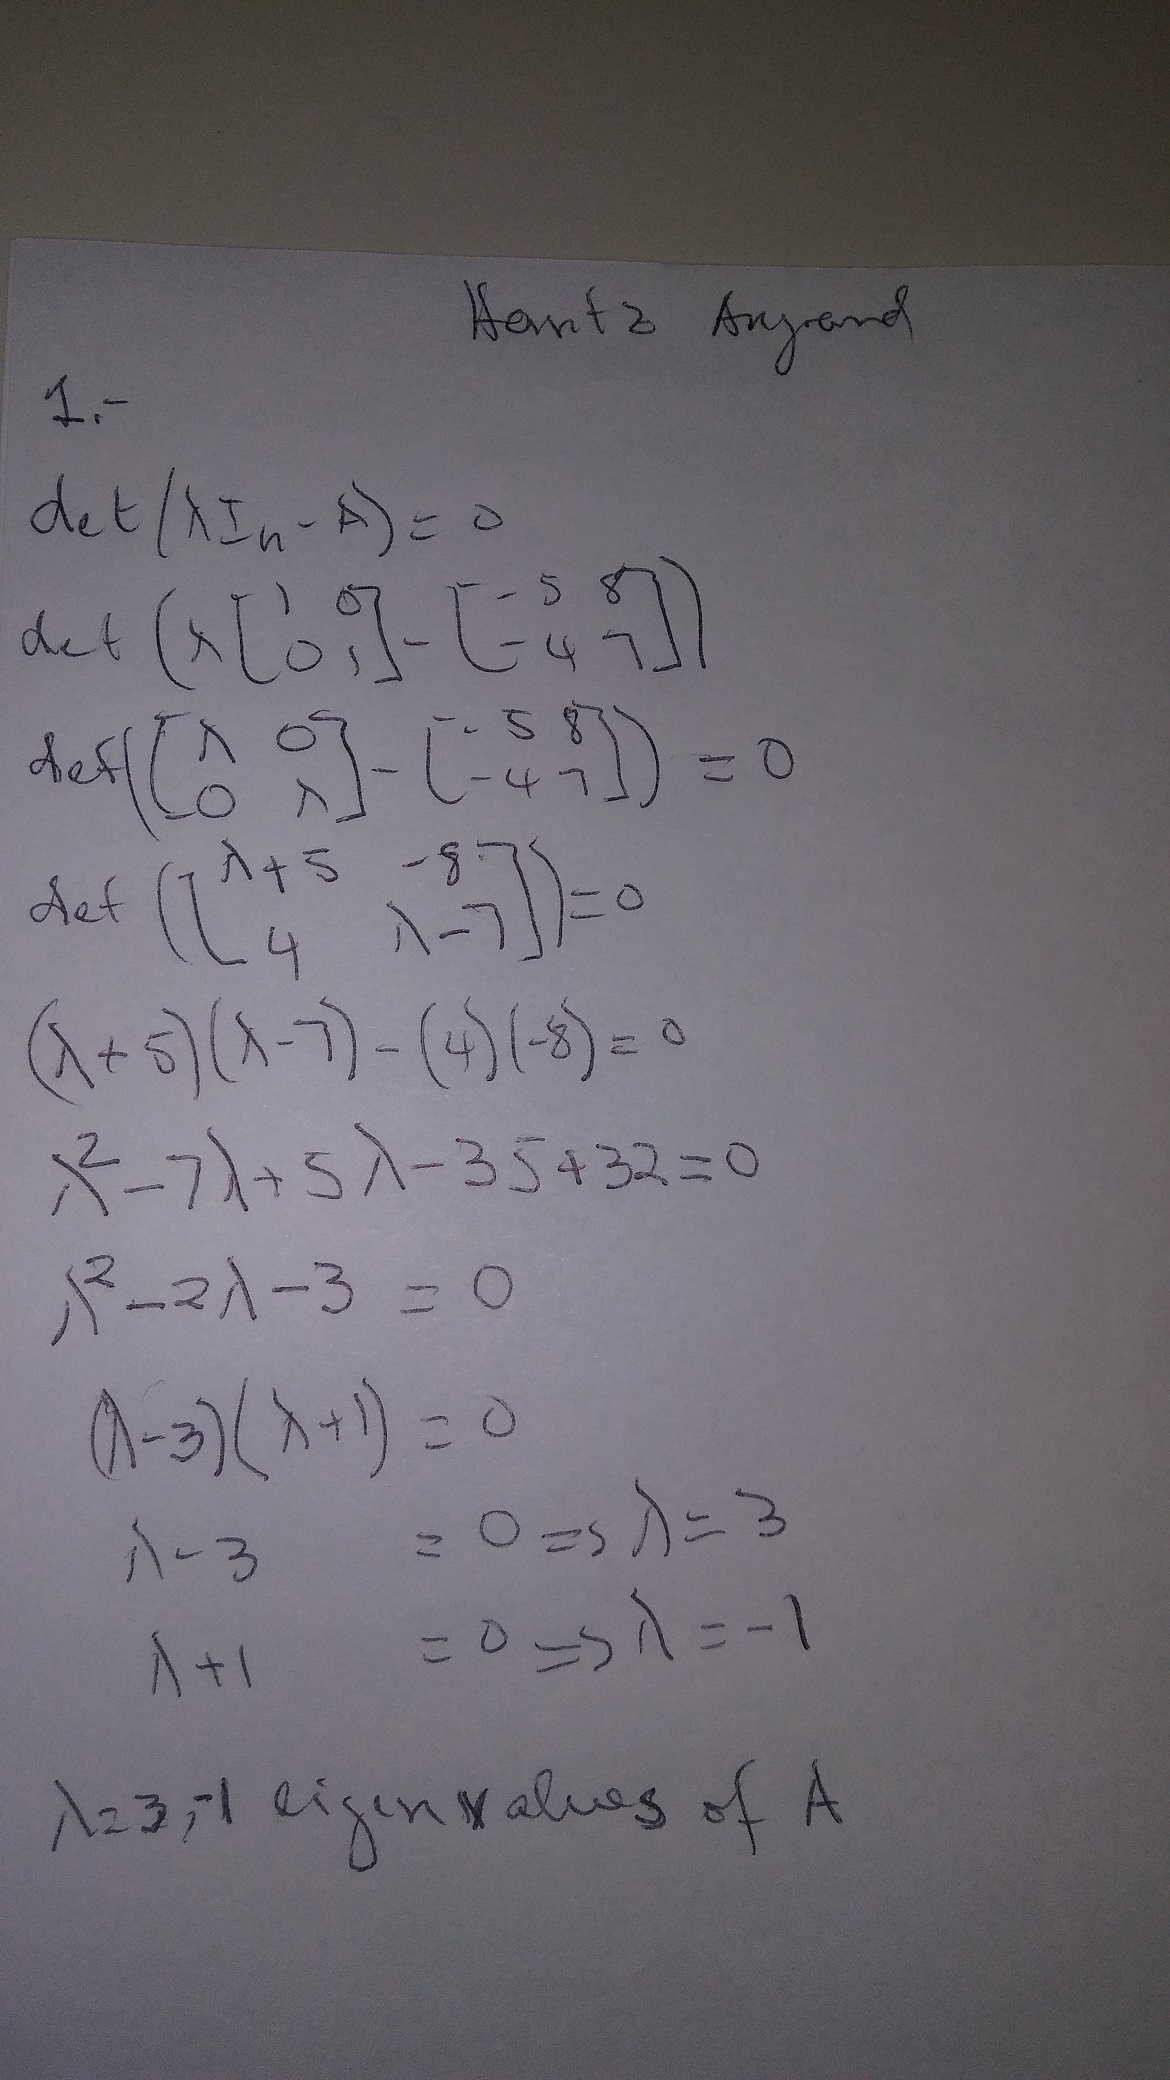 1.-
det (λIn - A) = 0
det (λ [1 0 0 1] - [-5 8 -4 7])
det ([λ 0 0 λ] - [-5 8 -4 7]) = 0
det ([λ+5 -8 4 λ-7]) = 0
(λ+5)(λ-7) - (4)(-8) = 0
λ² - 7λ + 5λ - 35 + 32 = 0
λ² - 2λ - 3 = 0
(λ-3)(λ+1) = 0
λ-3 = 0 => λ = 3
λ+1 = 0 => λ = -1
λ = 3, -1 eigen values of A